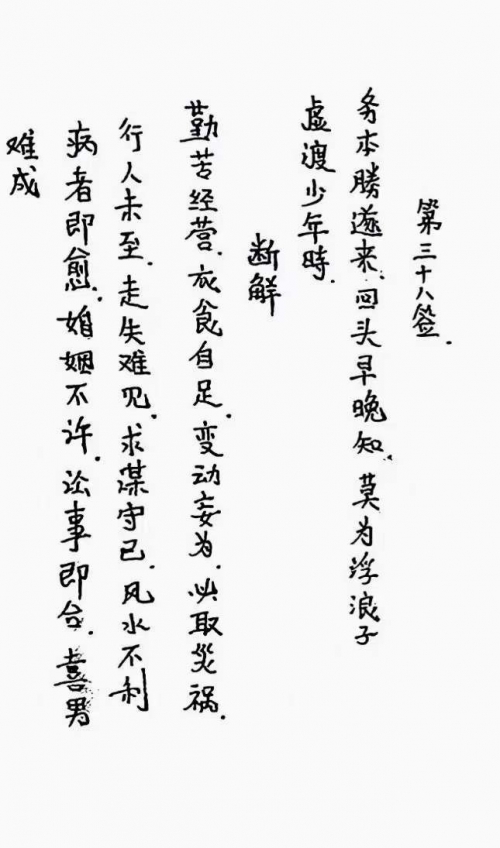 第三十八签.
务本勝遂来,回头早晚知.莫为浮浪子
虚渡少年時.
断解
勤苦经营.衣食自足.变动妄为.必取災祸.
行人未至.走失难见.求谋守己.风水不利
病者即愈.婚姻不许.讼事即台.喜男
难成